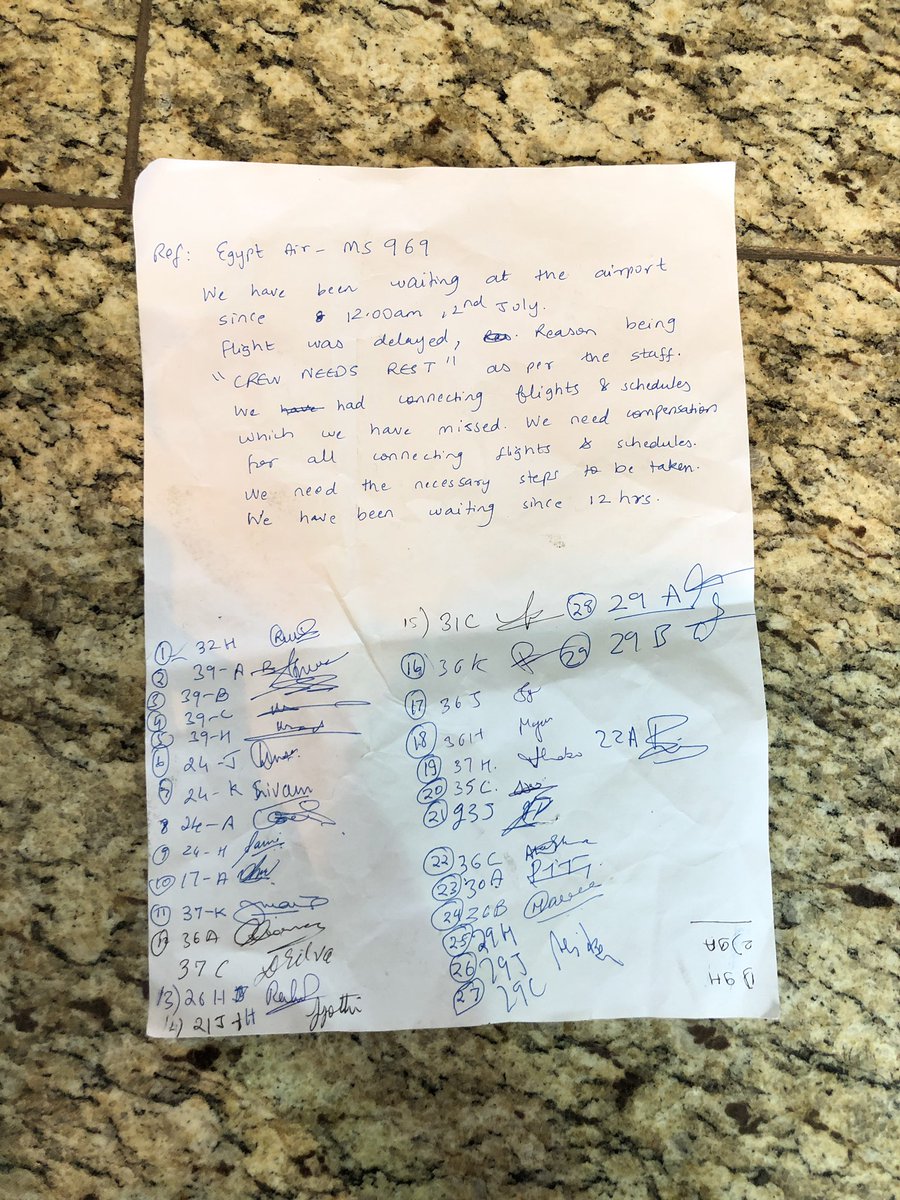 Ref: Egypt Air - MS 969
We have been waiting at the airport
since 12.00am, 2nd July.
flight was delayed, Reason being
"CREW NEEDS REST" as per the staff.
We had connecting flights & schedules
which we have missed. We need compensation
for all connecting flights & schedules.
We need the necessary steps to be taken.
We have been waiting since 12 hrs.
1 32H
2 39-A-B
3 39-B
4 39-C
5 39-H
6 24-J
7 24-K Srivam
8 24-A
9 24-H
10 17-A
11 37-K
12 36A
37C DSilva
13) 26H
14) 21J+H Jyothi
15) 31C
16 36K
17 36J
18 36H
19 37H.
20 35C.
21 93J
22 36C
23 30A
24 36B
25 29H
26 29J
27 29C
28 29A
29 29B
22A
1) 9H
2) 9A